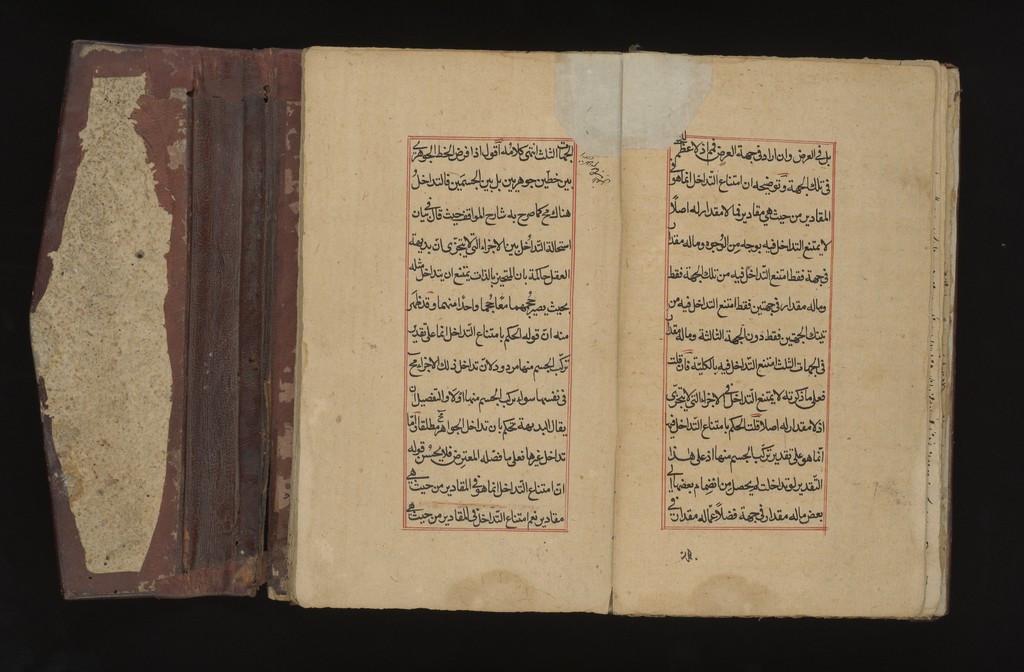 بل في العرض وان اراد في جهة العرض فيما اذ لا عظم له
في تلك الجهة وتوضيحه ان امتناع التداخل انما هو في
المقادير من حيث هي مقادير فما لا مقدار له اصلاً
لا يمتنع التداخل فيه بوجه من الوجوه وما له مقدار
في جهة فقط امتنع التداخل فيه من تلك الجهة فقط
وما له مقدار في جهتين فقط امتنع التداخل فيه من
تينك الجهتين فقط دون الجهة الثالثة وما له مقدار
في الجهات الثلث امتنع التداخل فيه بالكلية فان قلت
فعلى ما ذكرته لا يمتنع التداخل في الاجزاء التي لا يتجزى
اذ لا مقدار له اصلا قلت الحكم بامتناع التداخل فيها
انما هو على تقدير تركب الجسم منها اذ على هذا
التقدير لو تداخلت لم يحصل من انضمام بعضها الى
بعض ما له مقدار في جهة فضلاً عما له مقدار في
الجهات الثلث انتهى كلامه اقول اذا فرض الخط الجوهري
بين خطين جوهريين بل بين الجسمين فالتداخل
هناك مح كما صرح به شارح المواقف حيث قال في بيان
استحالة التداخل بين الاجزاء التي لا يتجزى ان بديهة
العقل حاكمة بان المتحيز بالذات يمتنع ان يتداخل مثله
بحيث يصير حجمهما معا حجما واحدا منهما وقد ظهر
منه ان قوله الحكم بامتناع التداخل انما على تقدير
تركب الجسم منها مردود لان تداخل ذلك الاجزاء مح
في نفسها سواء تركب الجسم منها اولا والتفصيل ان
يقال البديهة تحكم بان تداخل الجواهر مح مطلقا واما
تداخل غيرها فعلى ما فصله المعترض فلا يحسن قوله
ان امتناع التداخل انما هو في المقادير من حيث هي
مقادير نعم امتناع التداخل في المقادير من حيث هي